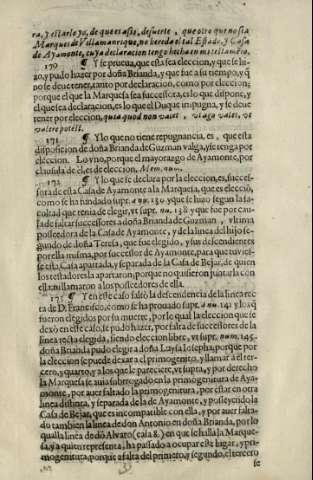 ra, y estarlo yo, de que es assi, de suerte, que otro que no sea
Marques de Villamanrique, no hereda el tal Estado, y Casa
de Ayamonte, cuya declaracion tengo hecha en mi testamẽto.
170 ¶ Y se prueua, que esta sea eleccion, y que se hi-
zo, y pudo hazer por doña Brianda, y que fue a su tiempo, y q̃
no se deue tener, tanto por declaracion, como por eleccion;
porque el que la Marquesa sea successora, es lo que dispone, y
el que sea declaracion, es lo que el Duque impugna, y se deue
tener por eleccion, quia quod non valet, vt ago valet, vt
valere potest.
171 ¶ Y lo que no tiene repugnancia, es, que esta
disposicion de doña Brianda de Guzman valga, y se tenga por
eleccion. Lo vno, porque el mayorazgo de Ayamonte, por
clausula de el, es de eleccion, Mem. num.
172 ¶ Y lo que se declara por la eleccion, es, succes-
sora de esta Casa de Ayamonte a la Marquesa, que es elecciõ,
como se ha fundado supr. à nu. 130. y que se hizo segun la fa-
cultad que tenia de elegir, vt supr. nu. 138. y que fue por cau-
sa de faltar successores a doña Brianda de Guzman, vltima
posseedora de la Casa de Ayamonte, y de la linea del hijo se-
gundo de doña Teresa, que fue elegido, y sus descendientes
por ella misma, por successor de Ayamonte, para que tuvies-
se esta Casa apartada, y separada de la Casa de Bejar, de quien
los testadores la apartaron, porque no quisieron juntarla con
ella, ni llamaron a los posseedores de ella.
173 ¶ Y en este caso faltò la descendencia de la linea rec-
ta de D. Francisco, como se ha prouado supr. à nu. 141. y los q̃
fueron elegidos por su muerte, por lo qual la eleccion que se
dexò en este caso, se pudo hazer, por falta de successores de la
linea recta elegida, siendo eleccion libre, vt supr. num. 145.
doña Brianda pudo elegir a doña Luysa Iosepha, porque por
la eleccion se puede dexar el primogenito, y llamar a el ter-
cero, y quarto, y a los que le pareciere, vt supra, y por derecho
la Marquesa se auia subrogado en la primogenitura de Aya-
monte, por auer faltado la primogenitura, por estar en otra
linea distinta, y separada de la de Ayamonte, y posseyendo la
Casa de Bejar, que es incompatible con ella, y por auer falta-
do tambien la linea de don Antonio en doña Brianda, por lo
qual la linea de dõ Alvaro (casa 8.) en que se halla la Marque-
sa, y a quien representa, ha passado a ocupar este lugar, y pri-
mogenitura, porque a falta del primero, y segundo, el tercero
se